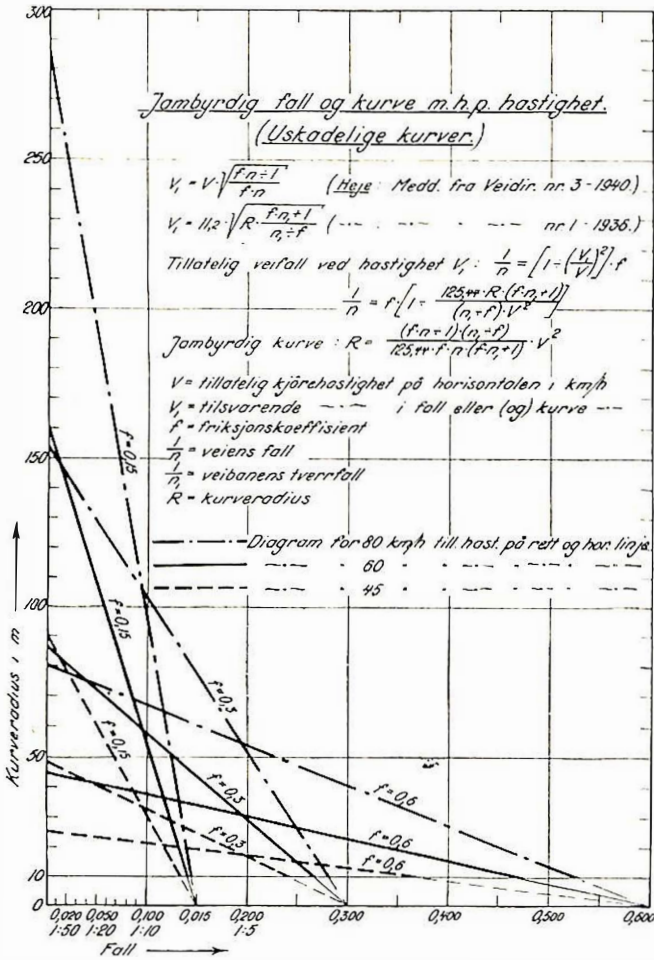 300
Jambyrdig fall og kurve m.h.p. hastighet.
(Uskadelige kurver.)
250
V₁ = V·√((f·n÷1)/(f·n)) (Heje: Medd. fra Veidir. nr. 3 - 1940.)
V₁ = 11,2·√(R·(f·n₁+1)/(n₁÷f)) (—·— · — · — nr 1 - 1936.)
Tillatelig veifall ved hastighet V₁: 1/n = [1÷(V₁/V)²]·f
200
1/n = f·[1÷ (125,44·R·(f·n₁+1))/((n₁÷f)·V²)]
Jambyrdig kurve: R = ((f·n÷1)·(n₁÷f))/(125,44·f·n·(f·n₁+1))·V²
V = tillatelig kjörehastighet på horisontalen i km/h
V₁ = tilsvarende —·— i fall eller (og) kurve —·—
f = friksjonskoeffisient
1/n = veiens fall
150
1/n₁ = veibanens tverrfall
R = kurveradius
f=0,15
Diagram for 80 km/h till. hast. på rett og hor. linje.
60
45
100
f=0,15
f=0,3
f=0,15
50
f=0,3
f=0,6
f=0,3
f=0,6
f=0,6
10
0
Kurveradius i m
0,020 0,050 0,100 0,015 0,200 0,300 0,400 0,500 0,600
1:50 1:20 1:10 1:5
Fall